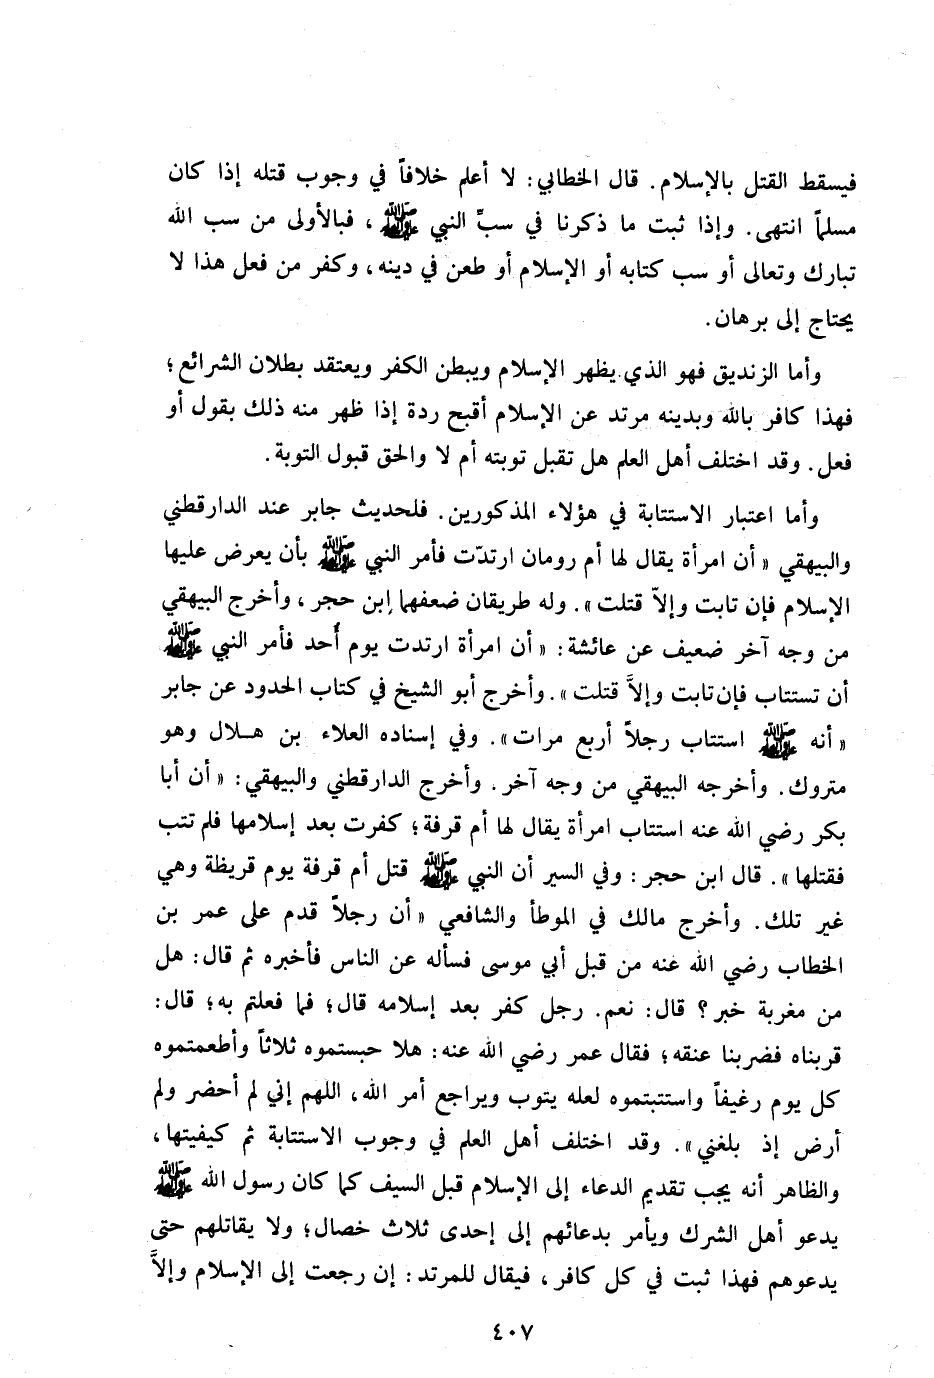 فيسقط القتل بالإسلام. قال الخطابي: لا أعلم خلافاً في وجوب قتله إذا كان
مسلماً انتهى. وإذا ثبت ما ذكرنا في سبِّ النبي ﷺ، فبالأولى من سب الله
تبارك وتعالى أو سب كتابه أو الإسلام أو طعن في دينه، وكفر من فعل هذا لا
يحتاج إلى برهان.
وأما الزنديق فهو الذي يظهر الإسلام ويبطن الكفر ويعتقد بطلان الشرائع؛
فهذا كافر بالله وبدينه مرتد عن الإسلام أقبح ردة إذا ظهر منه ذلك بقول أو
فعل. وقد اختلف أهل العلم هل تقبل توبته أم لا والحق قبول التوبة.
وأما اعتبار الاستتابة في هؤلاء المذكورين. فلحديث جابر عند الدارقطني
والبيهقي « أن امرأة يقال لها أم رومان ارتدّت فأمر النبي ﷺ بأن يعرض عليها
الإسلام فإن تابت وإلاّ قتلت». وله طريقان ضعفهما إبن حجر، وأخرج البيهقي
من وجه آخر ضعيف عن عائشة: « أن امرأة ارتدت يوم أُحد فأمر النبي ﷺ
أن تستتاب فإن تابت وإلاَّ قتلت». وأخرج أبو الشيخ في كتاب الحدود عن جابر
« أنه ﷺ استتاب رجلاً أربع مرات». وفي إسناده العلاء بن هلال وهو
متروك. وأخرجه البيهقي من وجه آخر. وأخرج الدارقطني والبيهقي: « أن أبا
بكر رضي الله عنه استتاب امرأة يقال لها أم قرفة؛ كفرت بعد إسلامها فلم تتب
فقتلها». قال ابن حجر: وفي السير أن النبي ﷺ قتل أم قرفة يوم قريظة وهي
غير تلك. وأخرج مالك في الموطأ والشافعي « أن رجلاً قدم على عمر بن
الخطاب رضي الله عنه من قبل أبي موسى فسأله عن الناس فأخبره ثم قال: هل
من مغربة خبر؟ قال: نعم. رجل كفر بعد إسلامه قال؛ فما فعلتم به؛ قال:
قربناه فضربنا عنقه؛ فقال عمر رضي الله عنه: هلا حبستموه ثلاثاً وأطعمتموه
كل يوم رغيفاً واستتبتموه لعله يتوب ويراجع أمر الله، اللهم إني لم أحضر ولم
أرض إذ بلغني». وقد اختلف أهل العلم في وجوب الاستتابة ثم كيفيتها،
والظاهر أنه يجب تقديم الدعاء إلى الإسلام قبل السيف كما كان رسول الله ﷺ
يدعو أهل الشرك ويأمر بدعائهم إلى إحدى ثلاث خصال؛ ولا يقاتلهم حتى
يدعوهم فهذا ثبت في كل كافر، فيقال للمرتد: إن رجعت إلى الإسلام وإلاَّ
٤٠٧